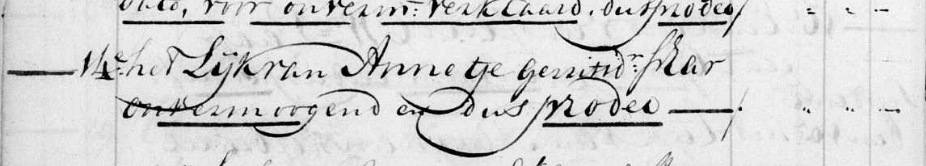 dato, voor onverm: verklaard, dus prodeo /
14e. het Lijk van Annetje gerritsdr: Skar
onvermoogend en dus prodeo — /